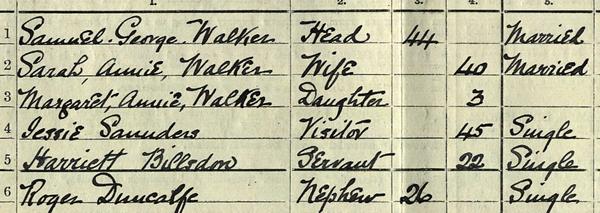 1. 2. 3. 4. 5.
1 Samuel George Walker Head 44 Married
2 Sarah, Annie, Walker Wife 40 Married
3 Margaret, Annie, Walker Daughter 3
4 Jessie Saunders Visitor 45 Single
5 Harriett Billsdon Servant 22 Single
6 Roger Duncalfe Nephew 26 Single